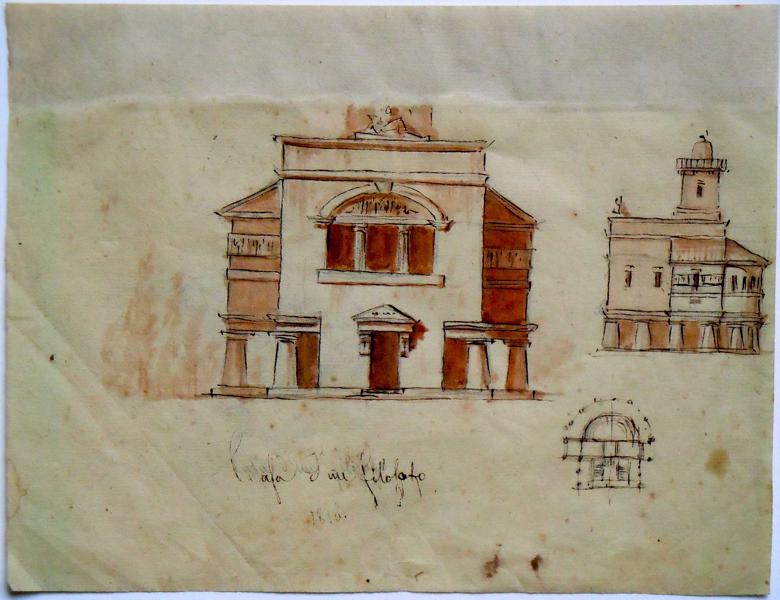 Casa d'un filosofo
1810.